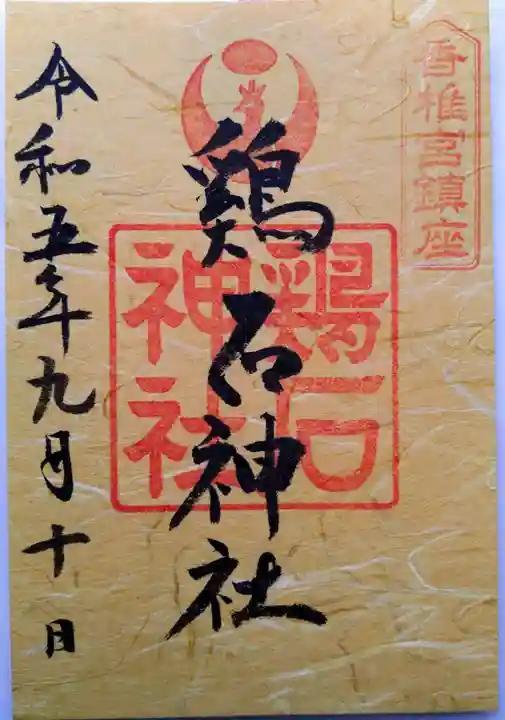 香椎宮鎮座
鶏石神社
鶏石
神社
令和五年九月十日